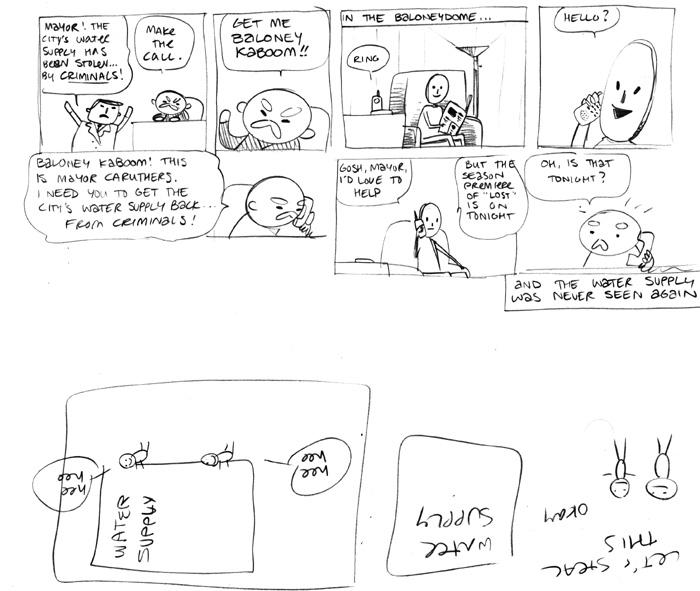 MAYOR! THE
CITY'S WATER
SUPPLY HAS
BEEN STOLEN...
BY CRIMINALS!
MAKE
THE
CALL.
GET ME
BALONEY
KABOOM!!
IN THE BALONEYDOME...
RING
HELLO?
BALONEY KABOOM! THIS
IS MAYOR CARUTHERS.
I NEED YOU TO GET THE
CITY'S WATER SUPPLY BACK...
FROM CRIMINALS!
GOSH, MAYOR,
I'D LOVE TO
HELP
BUT THE
SEASON
PREMIERE
OF "LOST"
IS ON
TONIGHT
OH, IS THAT
TONIGHT?
AND THE WATER SUPPLY
WAS NEVER SEEN AGAIN
LET'S STEAL
THIS
OKAY
WATER
SUPPLY
HEE
HEE
HEE
HEE
WATER
SUPPLY